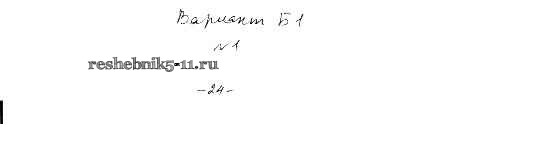 Вариант Б1
№1
reshebnik5-11.ru
-24-